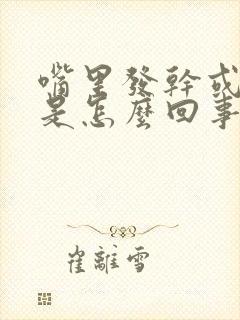 嘴里發幹或
是怎麼回事
崔離雪